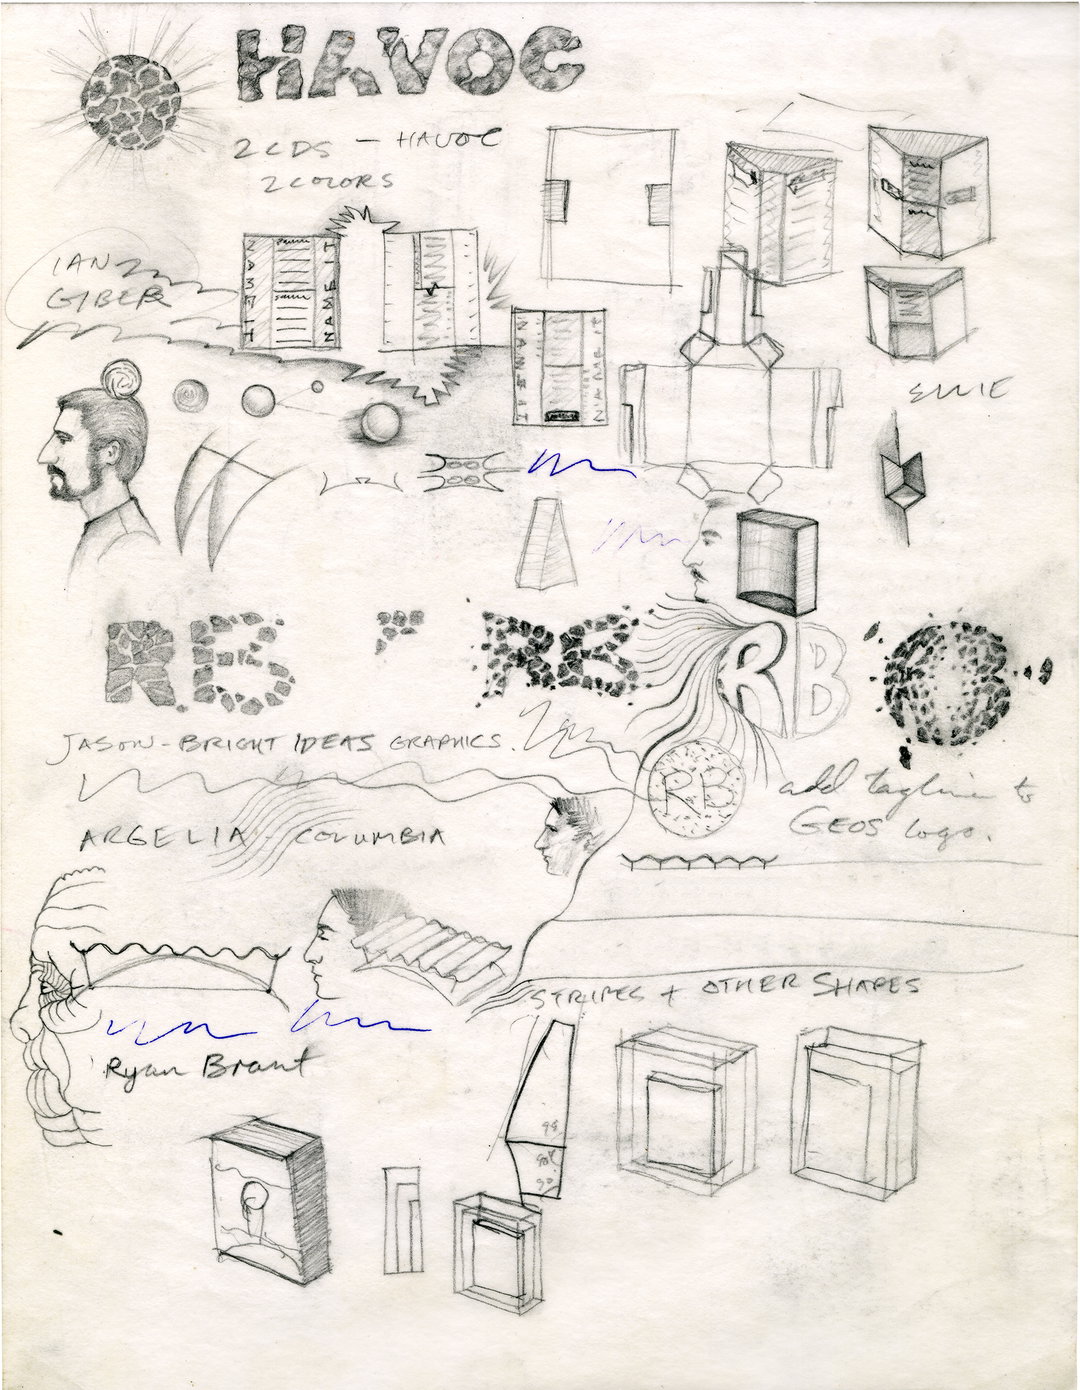 HAVOC
2 CDS - HAVOC
2 COLORS
IAN
GIBER
NAME IT
NAME IT
NAME IT
NAME IT
ELLIE
RB
RB
RB
RB
JASON-BRIGHT IDEAS GRAPHICS.
add tagline to
GEOS logo.
ARGELIA - COLUMBIA
STRIPES + OTHER SHAPES
Ryan Brant